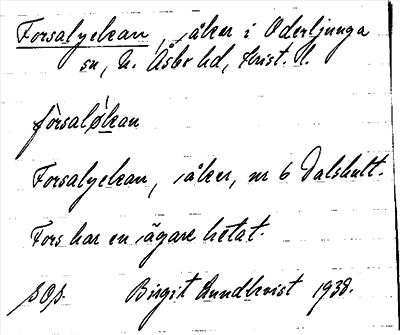 Forsalyckan, åker i Oderljunga
sn, N. Åsbo hd, Krist. l.
fòrsaløkan
Forsalyckan, åker, nr 6 Dalshult.
Fors har en ägare hetat.
Birgit Rundkvist 1938.